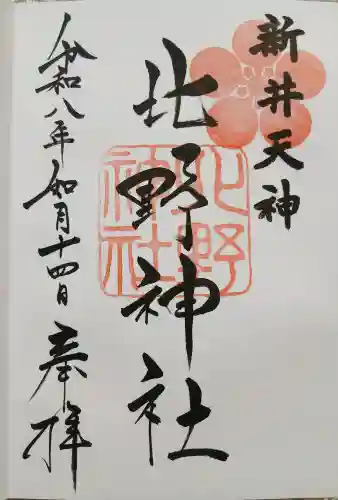 新井天神
北野神社
北野
神社
令和八年如月十四日
奉拝